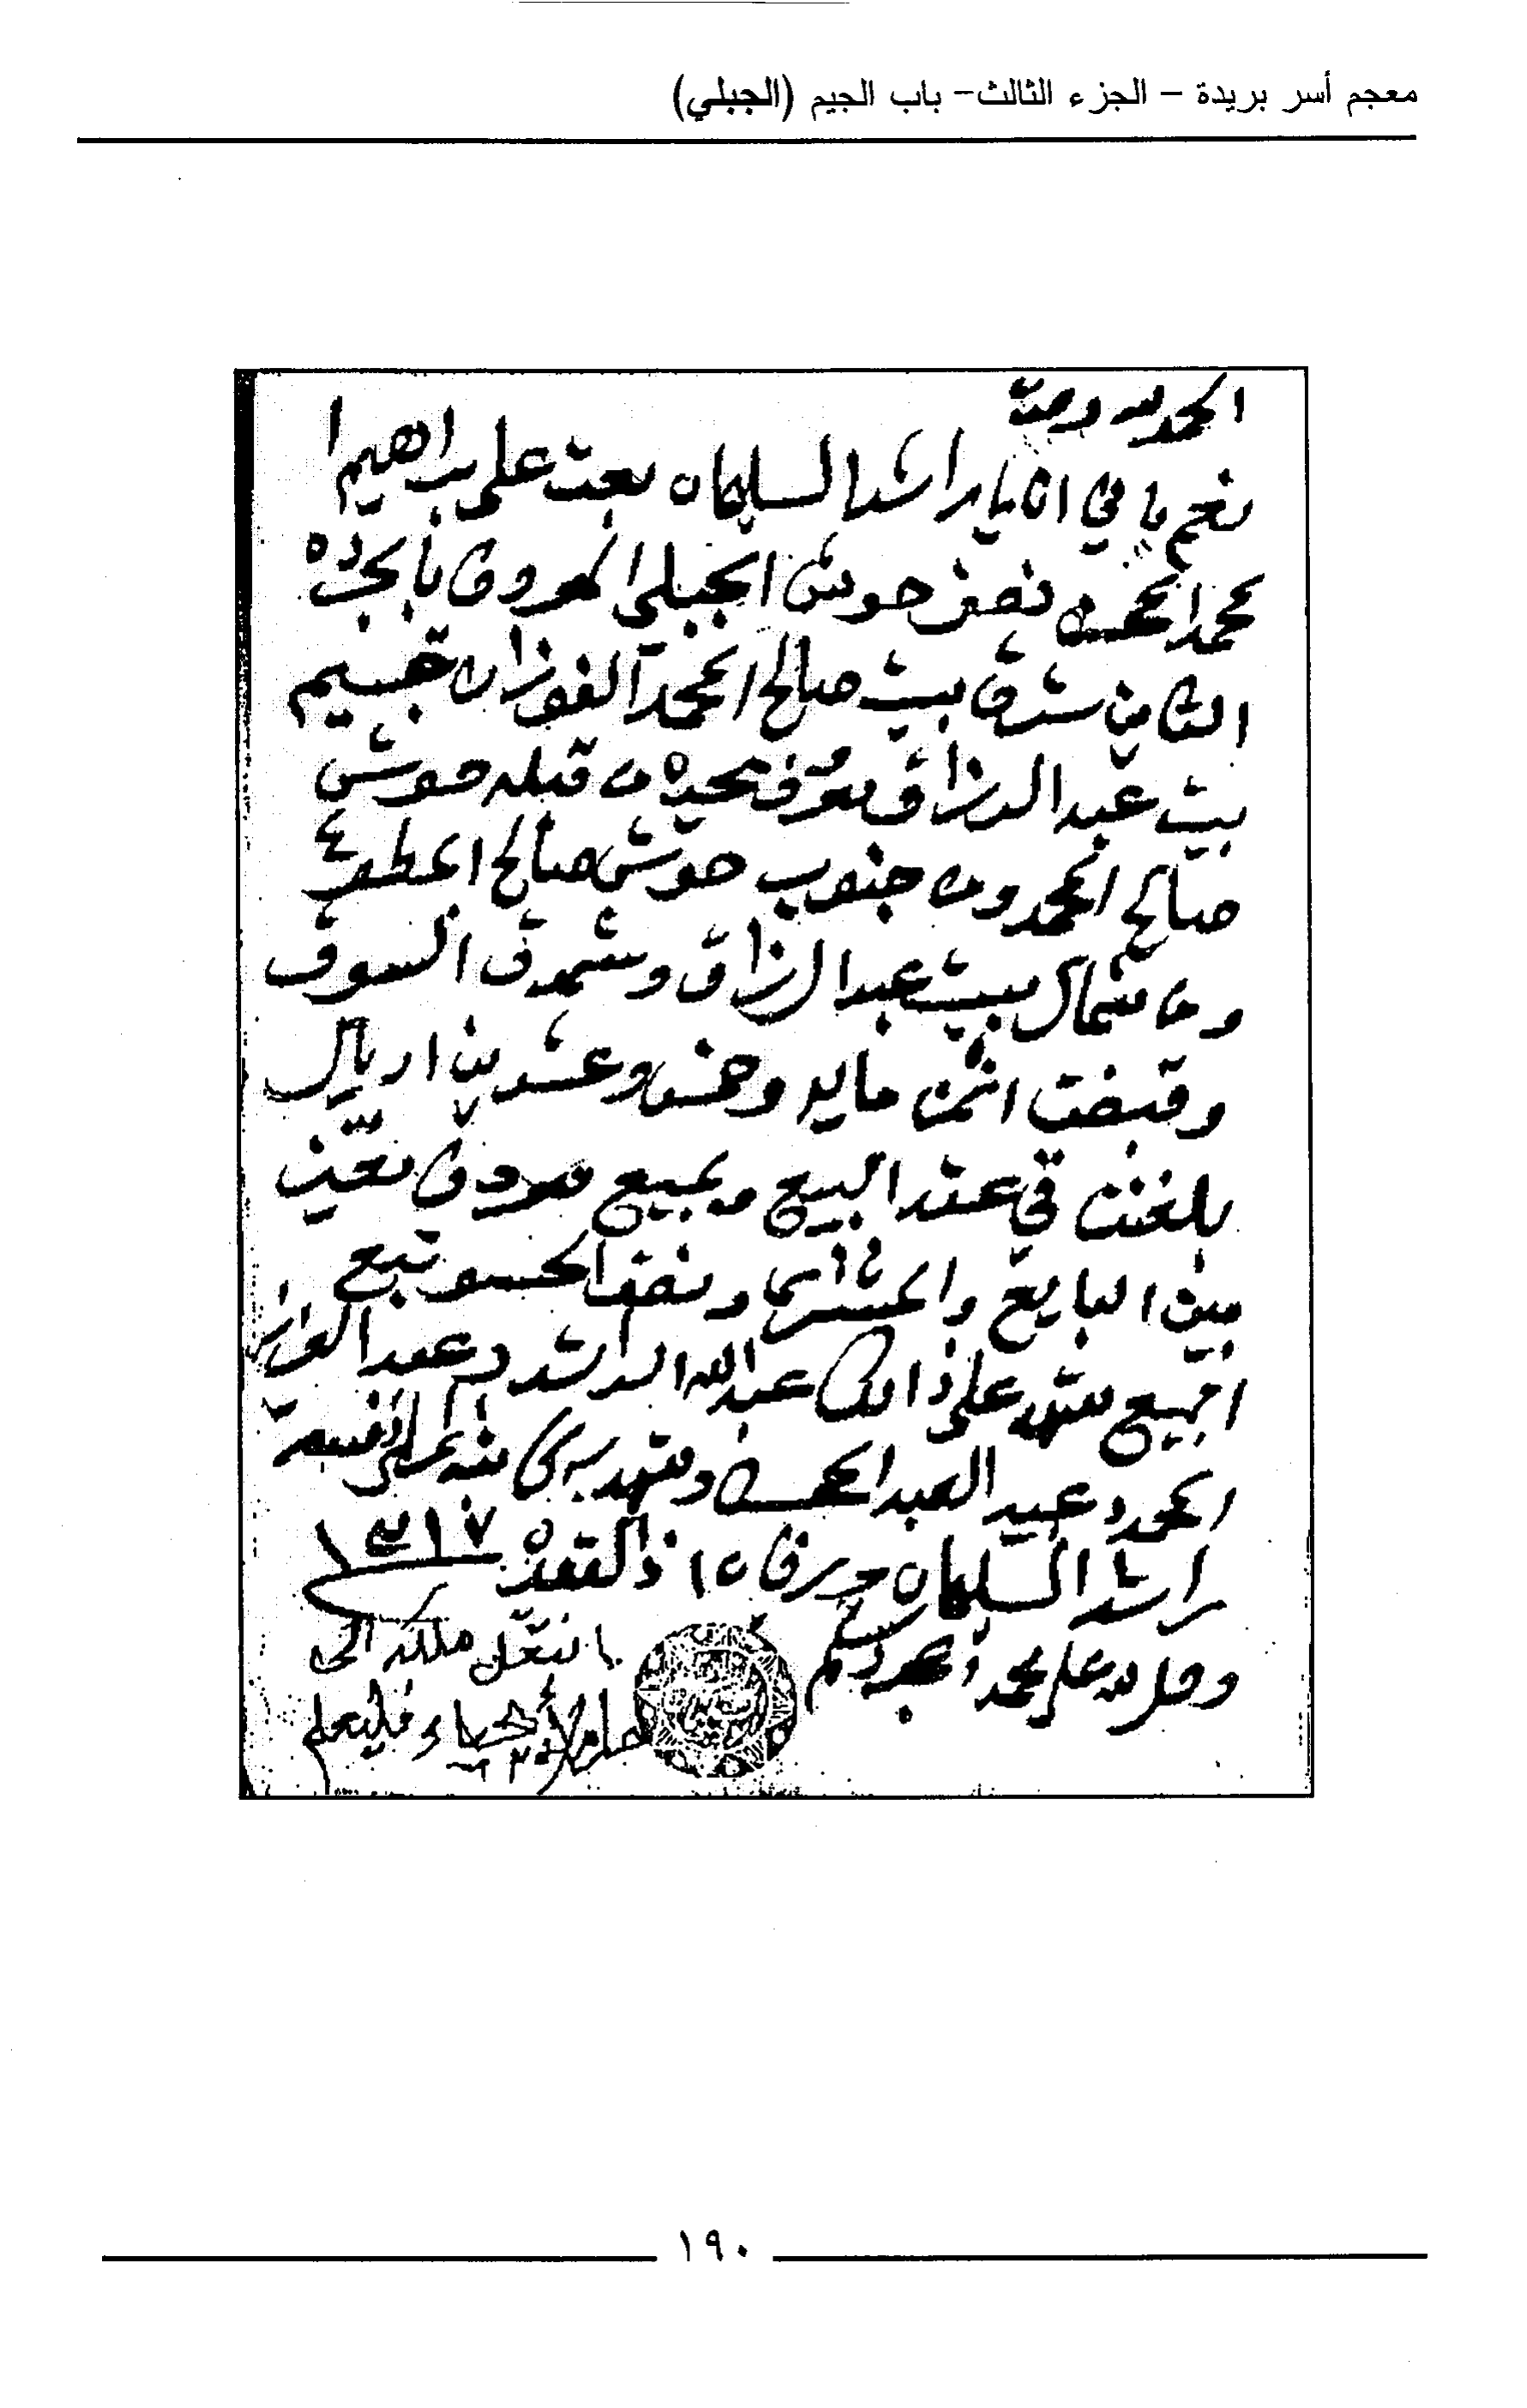 معجم أسر بريدة – الجزء الثالث – باب الجيم (الجبلي)
الحمد لله وحده
نعم يا في انا يا راشد السليمان بعت على براهيم ا
محمد المحسن نصف حوش الجبلي المعروف بالجرده
الكاين شرق بيت صالح المحمد الفوزان قسيم
بيت عبد الرزاق يعرف بحده من قبله حوش
صالح المحمد ومن جنوب حوش صالح المطوع
ومن شمال بيت عبد الرزاق وشرق السوق
وقبضت الثمن مايه وخمس وعشرين اريال
بلغن في عقد البيع وبمبيع معروف
بين البايع والمشتري ونصف الحسو تبع
المبيع شهد على ذالك عبد الله الراشد وعبد العزيز
المحمد وعبيد العبد المحسن وشهد به كاتبه عن نفسه
راشد السليمان حرر في ١٥ ذالقعده ١٣١٧
وصلى الله على محمد وسلم
انتقل ملكه الى
الأحياء فليعلم
١٩٠